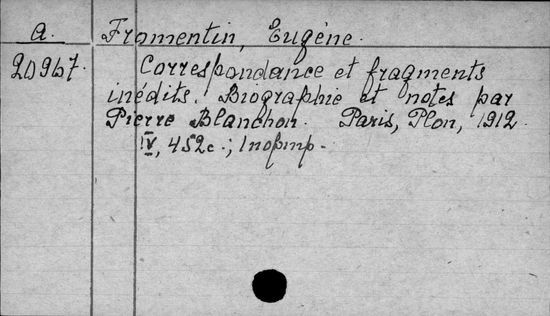 a. Fromentin, Eugène.
20967. Correspondance et fragments
inédits. Biographie et notes par
Pierre Blanchon. Paris, Plon, 1912.
IV, 452c.; 1 портр.